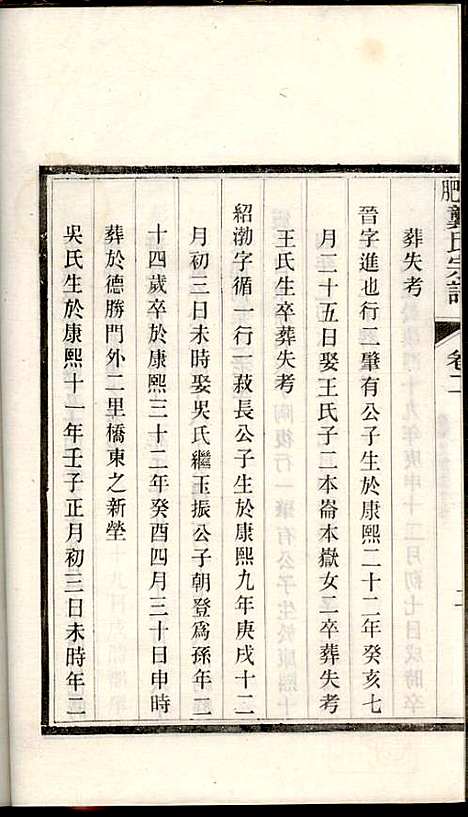 肥龔氏宗譜
卷二
葬失考
晉字進也行二肇有公子生於康熙二十二年癸亥七
月二十五日娶王氏子二本崙本嶽女二卒葬失考
王氏生卒葬失考
紹渤字循一行一救長公子生於康熙九年庚戌十二
月初三日未時娶吳氏繼玉振公子朝登爲孫年二
十四歲卒於康熙三十二年癸酉四月三十日申時
葬於德勝門外二里橋東之新塋
吳氏生於康熙十一年壬子正月初三日未時年二